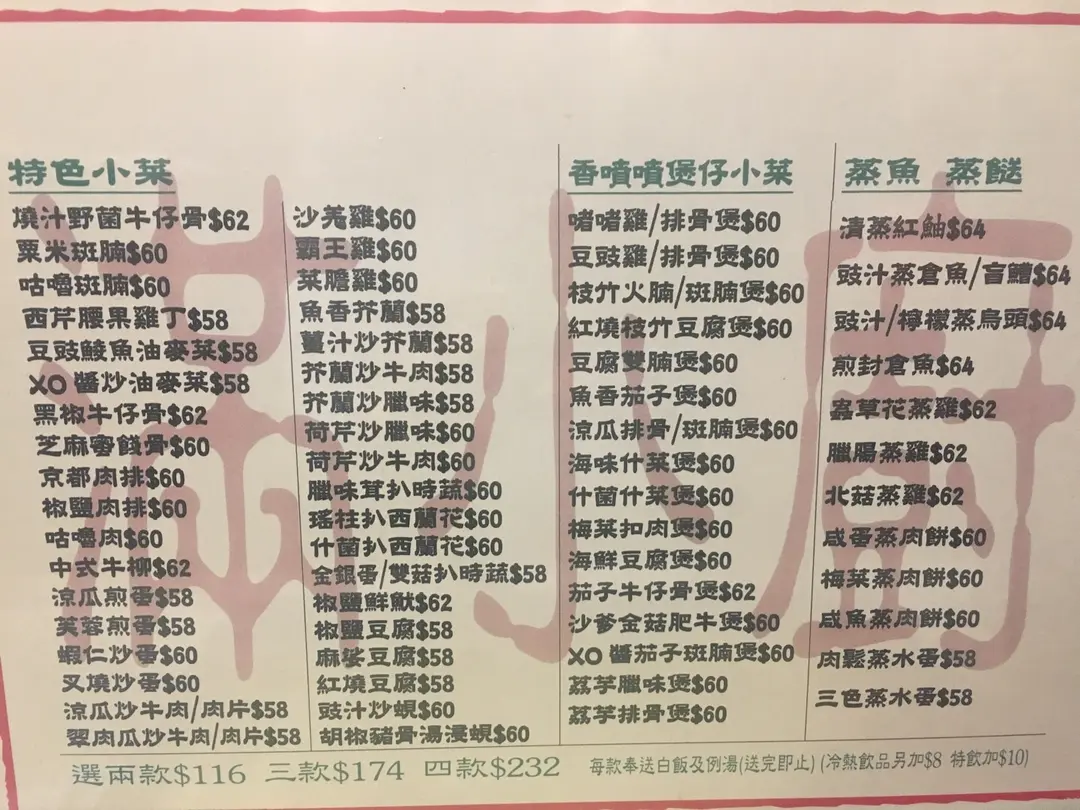 特色小菜
燒汁野菌牛仔骨$62
粟米斑腩$60
咕嚕斑腩$60
西芹腰果雞丁$58
豆豉鯪魚油麥菜$58
XO醬炒油麥菜$58
黑椒牛仔骨$62
芝麻蜜餞骨$60
京都肉排$60
椒鹽肉排$60
咕嚕肉$60
中式牛柳$62
涼瓜煎蛋$58
芙蓉煎蛋$58
蝦仁炒蛋$60
叉燒炒蛋$60
涼瓜炒牛肉/肉片$58
翠肉瓜炒牛肉/肉片$58
沙羗雞$60
霸王雞$60
菜膽雞$60
魚香芥蘭$58
薑汁炒芥蘭$58
芥蘭炒牛肉$58
芥蘭炒臘味$58
荷芹炒臘味$60
荷芹炒牛肉$60
臘味茸扒時蔬$60
瑤柱扒西蘭花$60
什菌扒西蘭花$60
金銀蛋/雙菇扒時蔬$58
椒鹽鮮魷$62
椒鹽豆腐$58
麻婆豆腐$58
紅燒豆腐$58
豉汁炒蜆$60
胡椒豬骨湯浸蜆$60
香噴噴煲仔小菜
啫啫雞/排骨煲$60
豆豉雞/排骨煲$60
枝竹火腩/斑腩煲$60
紅燒枝竹豆腐煲$60
豆腐雙腩煲$60
魚香茄子煲$60
涼瓜排骨/斑腩煲$60
海味什菜煲$60
什菌什菜煲$60
梅菜扣肉煲$60
海鮮豆腐煲$60
茄子牛仔骨煲$62
沙爹金菇肥牛煲$60
XO醬茄子斑腩煲$60
荔芋臘味煲$60
荔芋排骨煲$60
蒸魚 蒸餸
清蒸紅鮋$64
豉汁蒸倉魚/盲鰽$64
豉汁/檸檬蒸烏頭$64
煎封倉魚$64
蟲草花蒸雞$62
臘腸蒸雞$62
北菇蒸雞$62
咸蛋蒸肉餅$60
梅菜蒸肉餅$60
咸魚蒸肉餅$60
肉鬆蒸水蛋$58
三色蒸水蛋$58
選兩款$116 三款$174 四款$232
每款奉送白飯及例湯(送完即止)(冷熱飲品另加$8 特飲加$10)